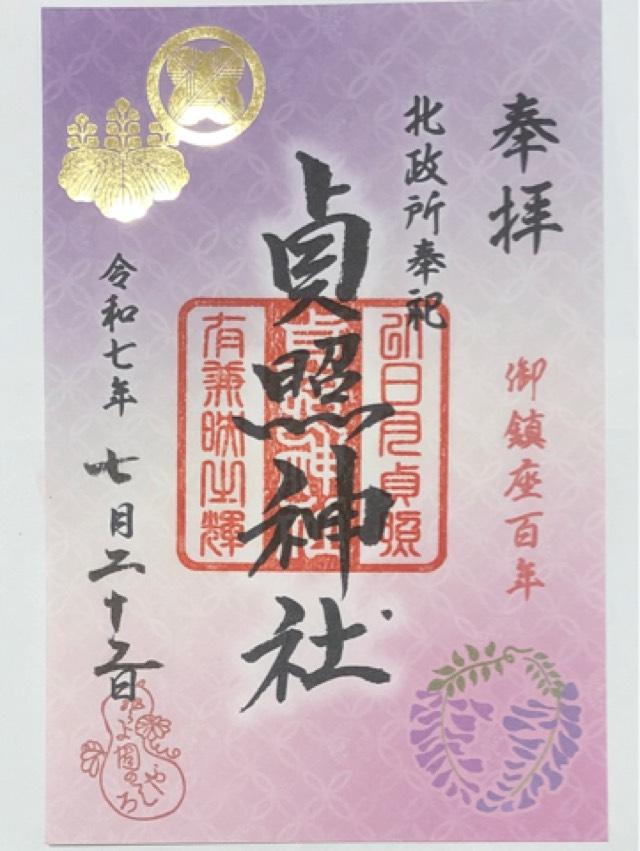 奉拝
御鎮座百年
北政所奉祀
貞照神社
日月貞照
有兼映之輝
令和七年
七月二十日